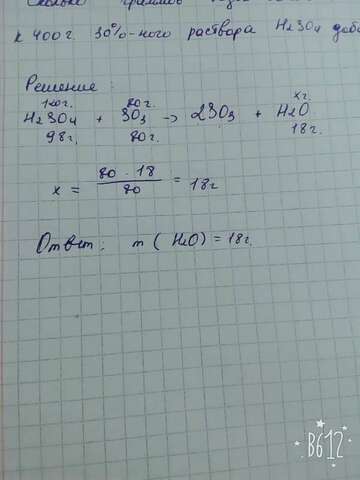 Сколько граммов
к 400 г. 30%-ного раствора H2SO4 доба
Решение :
120г. 80г. xг.
H2SO4 + SO3 → 2SO3 + H2O
98г. 80г. 18г.
x = 80 · 18 / 80 = 18г
Ответ : m ( H2O) = 18г.
B612